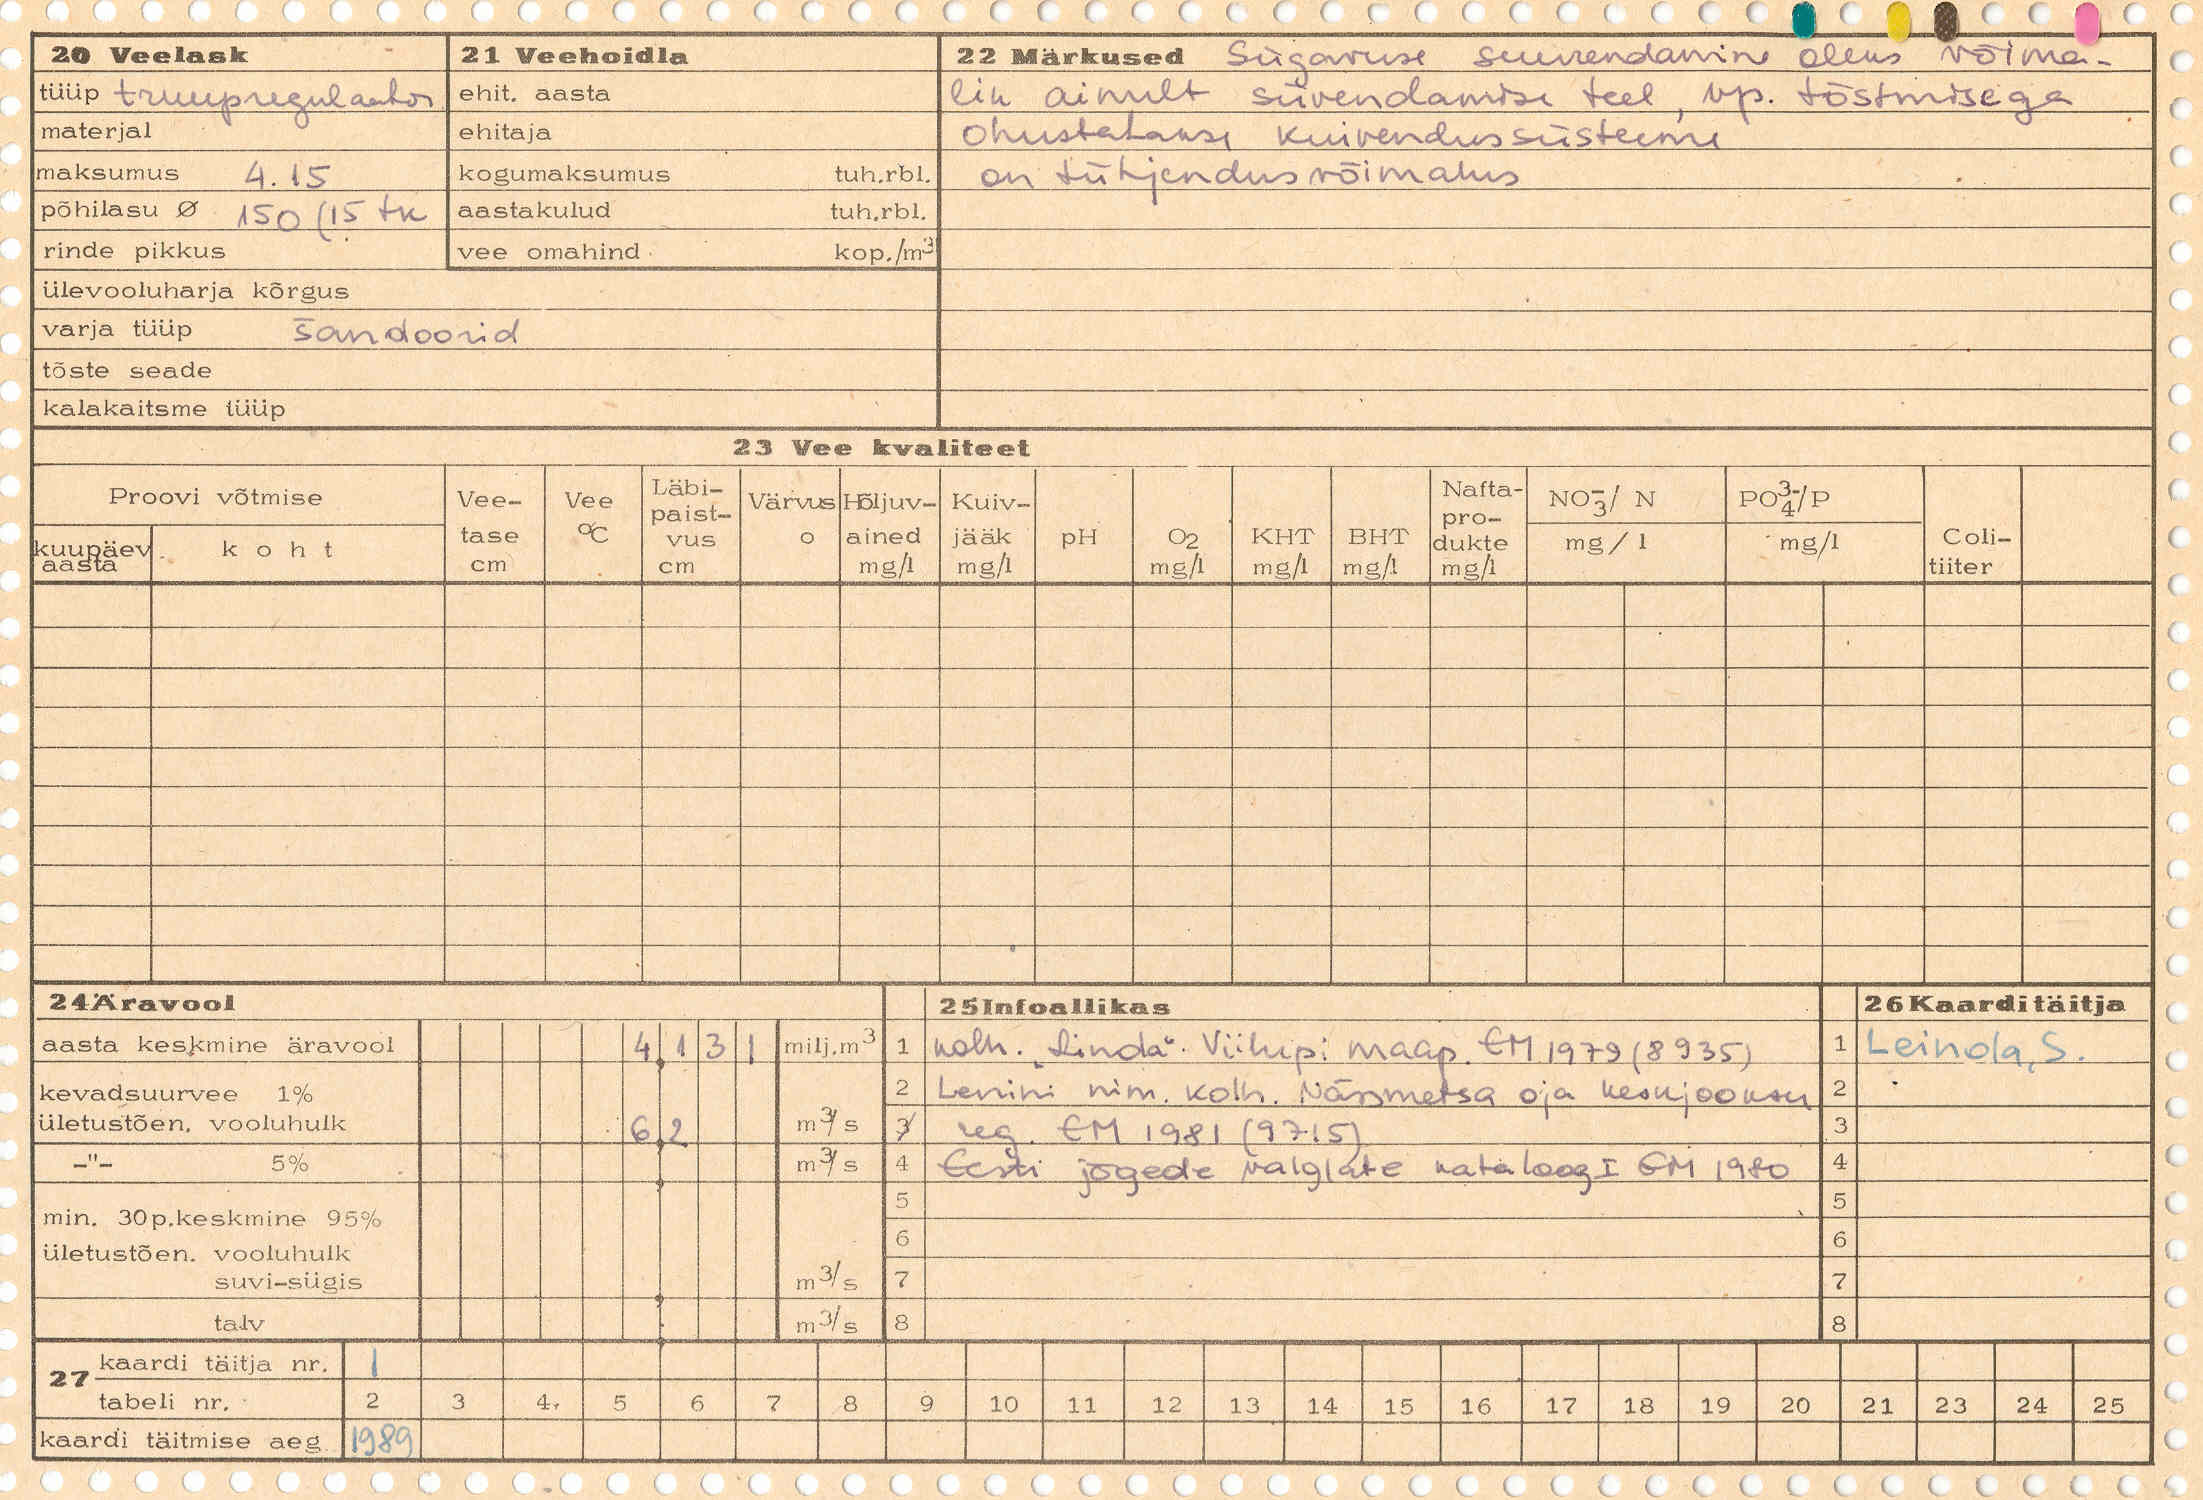 20 Veelask
tüüp truupregulaator
materjal
maksumus 4.15
põhilasu Ø 150 (15 tk
rinde pikkus
ülevooluharja kõrgus
varja tüüp šandoorid
tõste seade
kalakaitsme tüüp
21 Veehoidla
ehit. aasta
ehitaja
kogumaksumus tuh.rbl.
aastakulud tuh.rbl.
vee omahind kop./m³
22 Märkused Sügavuse suurendamine oleks võima-
lik ainult süvendamise teel, vp. tõstmisega
ohustatakse kuivendussüsteeme
on tühjendusvõimalus
23 Vee kvaliteet
Proovi võtmise
kuupäev aasta
koht
Vee-tase cm
Vee °C
Läbi-paist-vus cm
Värvus o
Hõljuv-ained mg/l
Kuiv-jääk mg/l
pH
O2 mg/l
KHT mg/l
BHT mg/l
Nafta-pro-dukte mg/l
NO₃⁻/ N mg/l
PO₄³⁻/P mg/l
Coli-tiiter
24 Äravool
aasta keskmine äravool 4,131 milj.m³
kevadsuurvee 1%
ületustõen. vooluhulk 6,2 m³/s
-"- 5% m³/s
min. 30p.keskmine 95%
ületustõen. vooluhulk
suvi-sügis m³/s
talv m³/s
25 Infoallikas
1 kolh. „Linda“. Viilupi maap. EM 1979 (8935)
2 Lenini nim. kolh. Närsmetsa oja keskjooksu
3 reg. EM 1981 (9715)
4 Eesti jõgede valglate kataloog I EM 1980
5
6
7
8
26 Kaarditäitja
1 Leinola, S.
2
3
4
5
6
7
8
27 kaardi täitja nr. 1
tabeli nr. 2 3 4. 5 6 7 8 9 10 11 12 13 14 15 16 17 18 19 20 21 23 24 25
kaardi täitmise aeg 1989